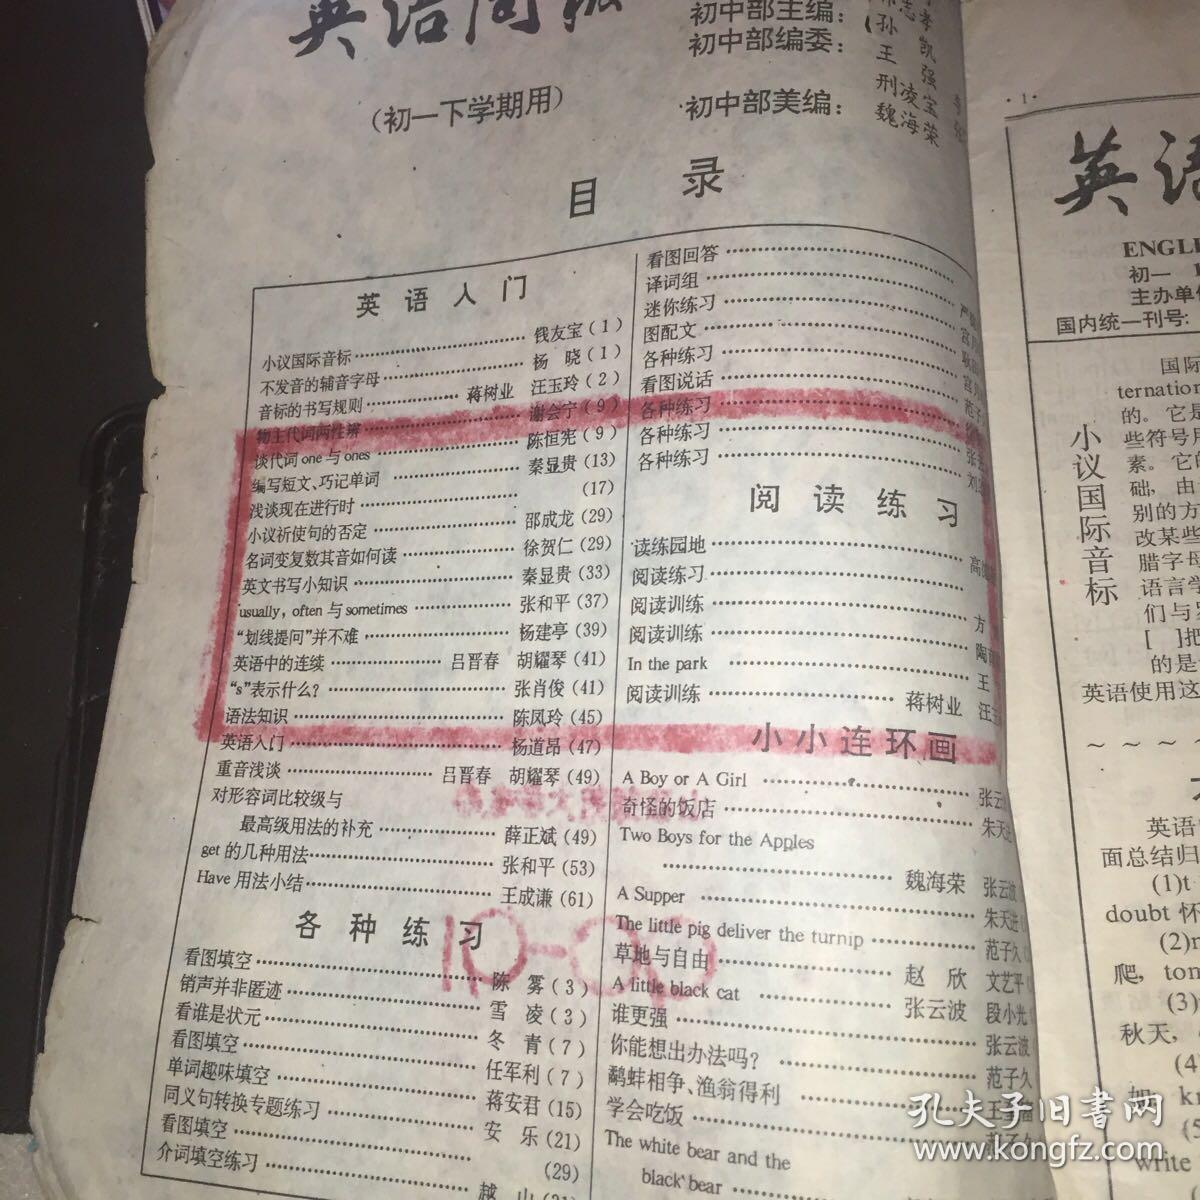 英语周报
(初一下学期用)
初中部主编:
初中部编委:
初中部美编:
孙
王
刑凌
魏海荣
孝
凯
强
宝
目录
英语人门
小议国际音标 钱友宝(1)
不发音的辅音字母 杨晓(1)
音标的书写规则 蒋树业 汪玉玲(2)
物主代词两性辨 谢会宁(9)
谈代词one与ones 陈恒宪(9)
编写短文、巧记单词 秦显贵(13)
浅谈现在进行时 (17)
小议祈使句的否定 邵成龙(29)
名词变复数其音如何读 徐贺仁(29)
英文书写小知识 秦显贵(33)
usually, often与sometimes 张和平(37)
“划线提问”并不难 杨建亭(39)
英语中的连续 吕晋春 胡耀琴(41)
“s”表示什么? 张肖俊(41)
语法知识 陈凤玲(45)
英语入门 杨道昂(47)
重音浅谈 吕晋春 胡耀琴(49)
对形容词比较级与
最高级用法的补充 薛正斌(49)
get的几种用法 张和平(53)
Have用法小结 王成谦(61)
各种练习
看图填空 陈雾(3)
销声并非匿迹 雪凌(3)
看谁是状元 冬青(7)
看图填空 任军利(7)
单词趣味填空 蒋安君(15)
同义句转换专题练习 安乐(21)
看图填空 (29)
介词填空练习 越山
看图回答
译词组
迷你练习
图配文
各种练习
看图说话
各种练习
各种练习
各种练习
阅读练习
读练园地
阅读练习
阅读训练 方
阅读训练
In the park 王
阅读训练 蒋树业
小小连环画
A Boy or A Girl 张云
奇怪的饭店 朱天进
Two Boys for the Apples
魏海荣 张云波
A Supper 朱天进
The little pig deliver the turnip 范子久
草地与自由 赵欣 文艺平
A little black cat 张云波 段小光
谁更强 张云波
你能想出办法吗? 范子久
鹬蚌相争、渔翁得利
学会吃饭
The white bear and the
black bear
10-00
·1·
英语
ENGL
初一
主办单
国内统一刊号:
小议国际音标
国际
ternation
的。它是
些符号用
素。它的
础,由
别的方
改某些
腊字母
语言学
们与
[ ]把
的是
英语使用这
～～～～
英语
面总结归
(1)t
doubt 怀
(2)n
爬,tom
(3)
秋天,
(4)
kn
(5)
write
孔夫子旧书网
www.kongfz.com